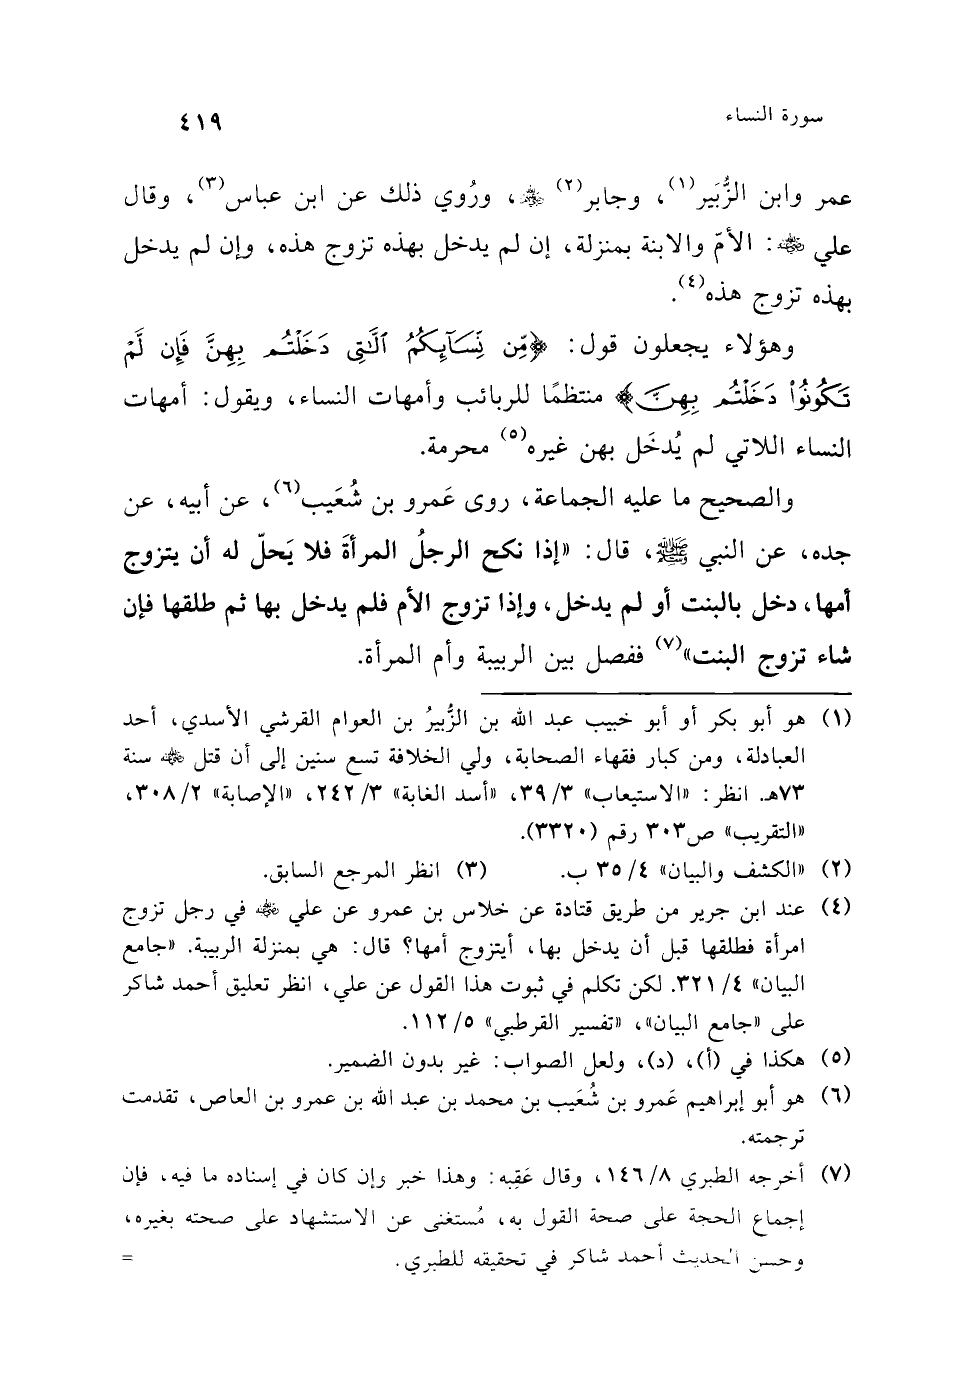 سورة النساء ٤١٩
عمر وابن الزُّبَير(١)، وجابر(٢) ﷺ، ورُوي ذلك عن ابن عباس(٣)، وقال
علي رضي الله عنه: الأمّ والابنة بمنزلة، إن لم يدخل بهذه تزوج هذه، وإن لم يدخل
بهذه تزوج هذه(٤).
وهؤلاء يجعلون قول: ﴿مِّن نِّسَآئِكُمُ ٱلَّٰتِى دَخَلْتُم بِهِنَّ فَإِن لَّمْ
تَكُونُوا۟ دَخَلْتُم بِهِنَّ﴾ منتظمًا للربائب وأمهات النساء، ويقول: أمهات
النساء اللاتي لم يُدخَل بهن غيره(٥) محرمة.
والصحيح ما عليه الجماعة، روى عَمرو بن شُعَيب(٦)، عن أبيه، عن
جده، عن النبي ﷺ، قال: «إذا نكح الرجلُ المرأةَ فلا يَحلّ له أن يتزوج
أمها، دخل بالبنت أو لم يدخل، وإذا تزوج الأم فلم يدخل بها ثم طلقها فإن
شاء تزوج البنت»(٧) ففصل بين الربيبة وأم المرأة.
(١) هو أبو بكر أو أبو خبيب عبد الله بن الزُّبيرُ بن العوام القرشي الأسدي، أحد
العبادلة، ومن كبار فقهاء الصحابة، ولي الخلافة تسع سنين إلى أن قتل رضي الله عنه سنة
٧٣هـ. انظر: «الاستيعاب» ٣/ ٣٩، «أسد الغابة» ٣/ ٢٤٢، «الإصابة» ٢/ ٣٠٨،
«التقريب» ص٣٠٣ رقم (٣٣٢٠).
(٢) «الكشف والبيان» ٤/ ٣٥ ب. (٣) انظر المرجع السابق.
(٤) عند ابن جرير من طريق قتادة عن خلاس بن عمرو عن علي رضي الله عنه في رجل تزوج
امرأة فطلقها قبل أن يدخل بها، أيتزوج أمها؟ قال: هي بمنزلة الربيبة. «جامع
البيان» ٤/ ٣٢١. لكن تكلم في ثبوت هذا القول عن علي، انظر تعليق أحمد شاكر
على «جامع البيان»، «تفسير القرطبي» ٥/ ١١٢.
(٥) هكذا في (أ)، (د)، ولعل الصواب: غير بدون الضمير.
(٦) هو أبو إبراهيم عَمرو بن شُعَيب بن محمد بن عبد الله بن عمرو بن العاص، تقدمت
ترجمته.
(٧) أخرجه الطبري ٨/ ١٤٦، وقال عَقِبه: وهذا خبر وإن كان في إسناده ما فيه، فإن
إجماع الحجة على صحة القول به، مُستغنى عن الاستشهاد على صحته بغيره،
وحسن الحديث أحمد شاكر في تحقيقه للطبري. =